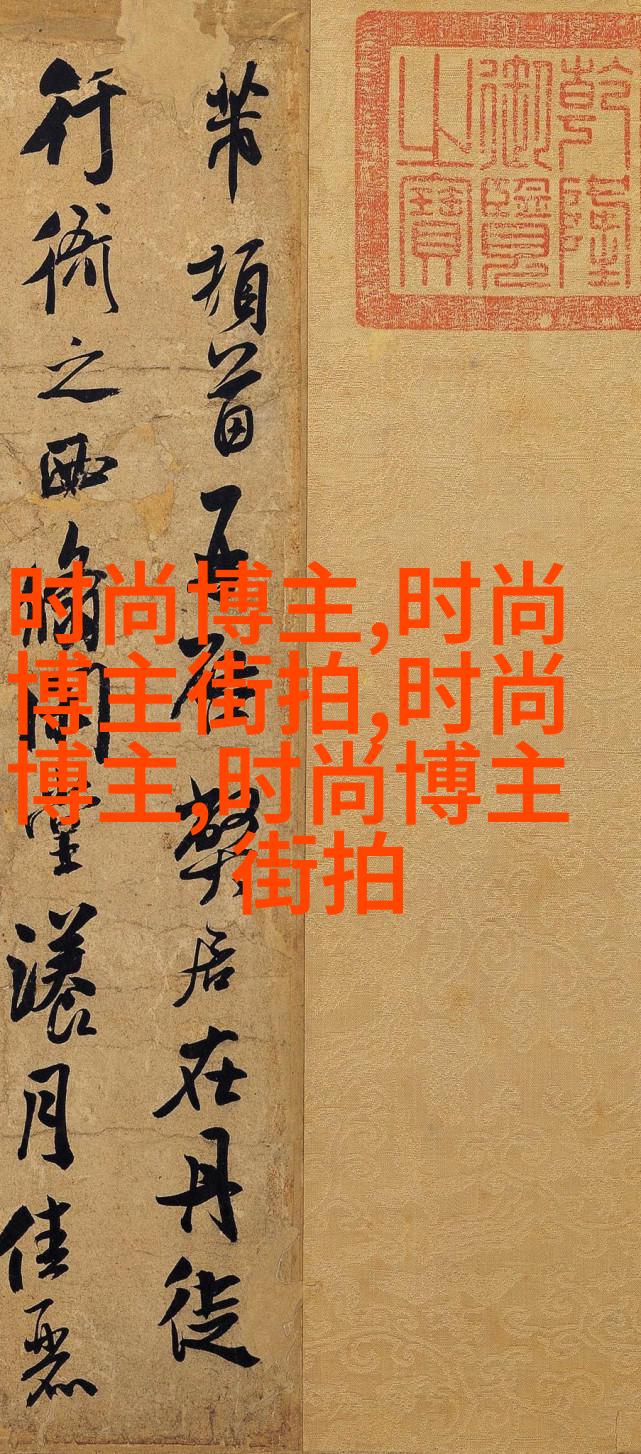 乾隆
御覽
之寶
芾頓首再啓弊居在丹徒
行衙之西翛閒堂漾月佳麗
时尚博主,时尚
博主街拍,时尚
博主,时尚博主
街拍